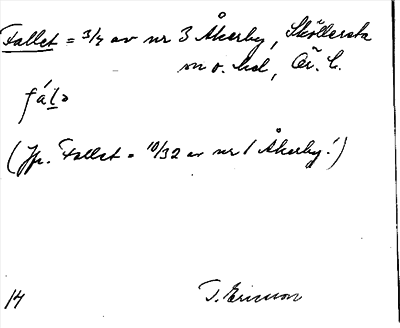 Fallet = 3/4 av nr 3 Åkerby, Sköllersta
sn o. hd, Ör. l.
fálə
(Jfr. Fallet = 10/32 av nr 1 Åkerby!)
14 T. Ericsson